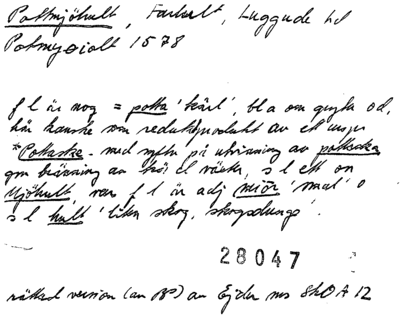 Pottmjöhult, Farhult, Luggude hd
Potmyeiolt 1578
f l är nog = potta 'kärl', bl a om gryta od,
här kanske som reduktprodukt av ett ursp
*Pottaske- med syftn på utvinning av pottaska
gm bränning av trä el växter, s l ett on
Mjöhult, vars f l är adj mjör 'smal' o
s l hult 'liten skog, skogsdunge'.
28047
rättad version (av) av Ejder ms SkO A 12